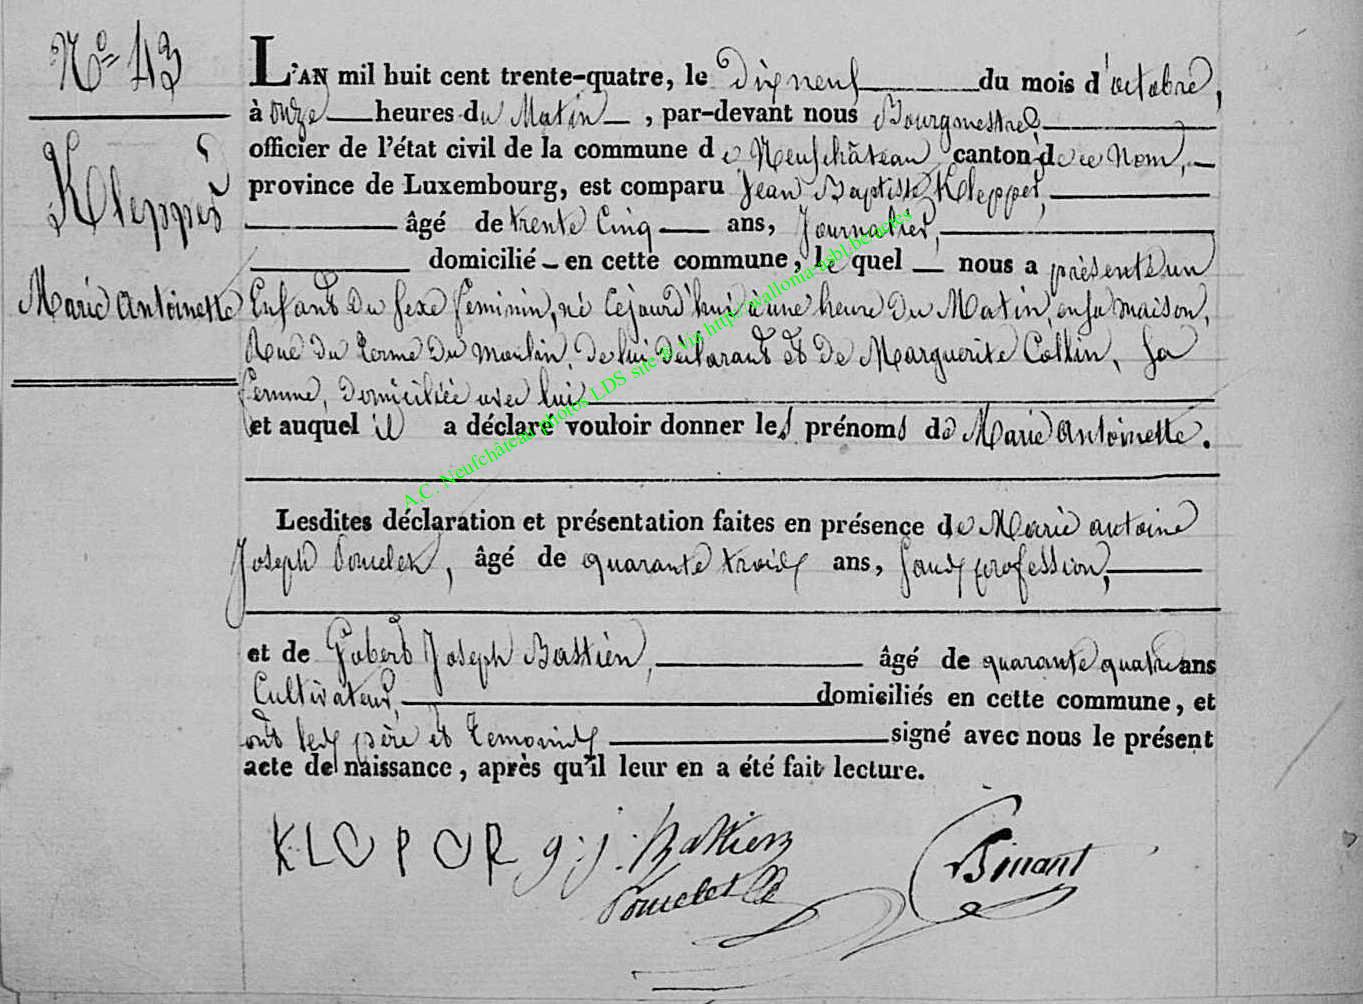 N° 43
Klepper
Marie Antoinette
L'AN mil huit cent trente-quatre, le dix neuf du mois d'octobre,
à onze heures du Matin, par-devant nous Bourgmestre
officier de l'état civil de la commune de Neufchâteau canton de ce Nom,
province de Luxembourg, est comparu Jean Baptiste Klepper,
âgé de trente Cinq ans, Journalier,
domicilié en cette commune, le quel nous a présenté un
Enfant du sexe féminin, né Cejourd'hui à une heure du Matin, en sa maison,
Rue du terme du moulin, de lui déclarant et de Marguerite Collin, sa
femme, domiciliée avec lui
et auquel il a déclaré vouloir donner les prénoms de Marie Antoinette.
Lesdites déclaration et présentation faites en présence de Marie antoine
Joseph Pouclet, âgé de quarante trois ans, sans profession,
et de Gobert Joseph Bastien, âgé de quarante quatre ans
Cultivateur, domiciliés en cette commune, et
ont les père et temoins signé avec nous le présent
acte de naissance, après qu'il leur en a été fait lecture.
KLOPOR g: j. Bastien
Pouclet Binant
A.C. Neufchâteau photos LDS site & via http://walloma-asbl.be/actes